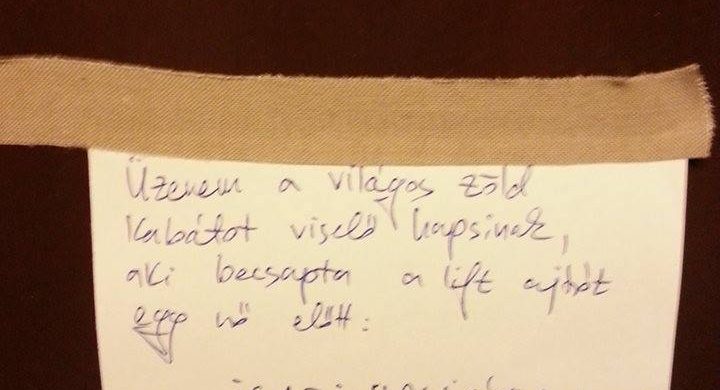 Üzenem a világos zöld
kabátot viselő hapsinak,
aki becsapta a lift ajtót
egy nő előtt: